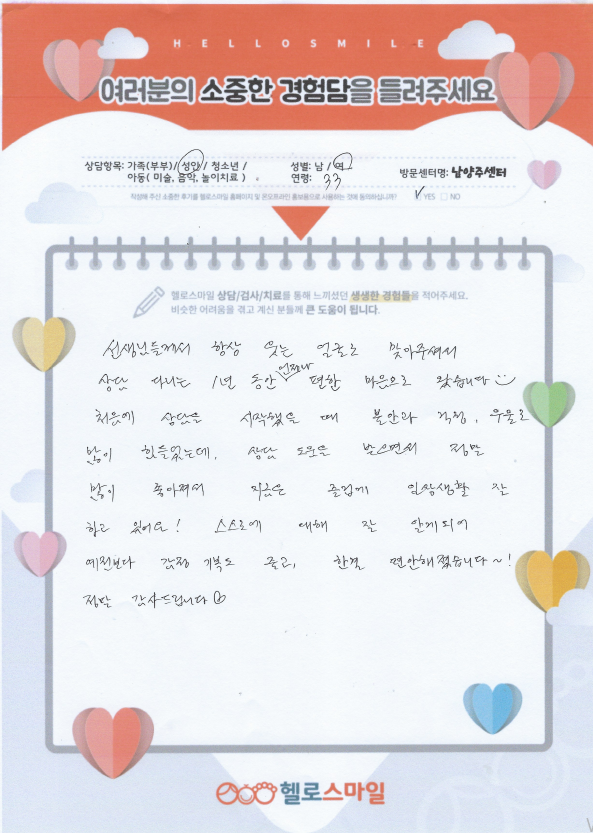 HELLOSMILE
여러분의 소중한 경험담을 들려주세요
상담항목: 가족(부부)/ 성인 / 청소년 / 성별: 남 / 여 방문센터명: 남양주센터
아동( 미술, 음악, 놀이치료 ) 연령: 33
작성해 주신 소중한 후기를 헬로스마일 홈페이지 및 온오프라인 홍보용으로 사용하는 것에 동의하십니까? ✓ YES □ NO
헬로스마일 상담/검사/치료를 통해 느끼셨던 생생한 경험들을 적어주세요.
비슷한 어려움을 겪고 계신 분들께 큰 도움이 됩니다.
선생님들께서 항상 웃는 얼굴로 맞아주셔서
상담 다니는 1년 동안 언제나 편한 마음으로 왔습니다
처음에 상담을 시작했을 때 불안과 걱정, 우울로
많이 힘들었는데, 상담 도움을 받으면서 정말
많이 좋아져서 지금은 즐겁게 일상생활 잘
하고 있어요! 스스로에 대해 잘 알게되어
예전보다 감정 기복도 줄고, 한결 편안해졌습니다~!
정말 감사드립니다
헬로스마일